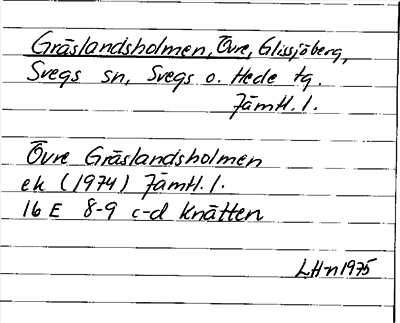 Gräslandsholmen, Övre, Glissjöberg,
Svegs sn, Svegs o. Hede tg.
Jämtl. l.
Övre Gräslandsholmen
ek (1974) Jämtl. l.
16 E 8-9 c-d Knätten
LHn 1975